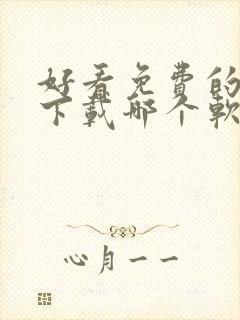 好看免费的
下载哪个软
心月一一